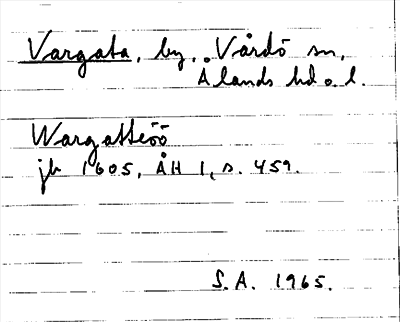 Vargata, by, Vårdö sn,
Ålands hd o. l.
Wargatteöö
jb 1605, ÅH 1, s. 459.
S.A. 1965.